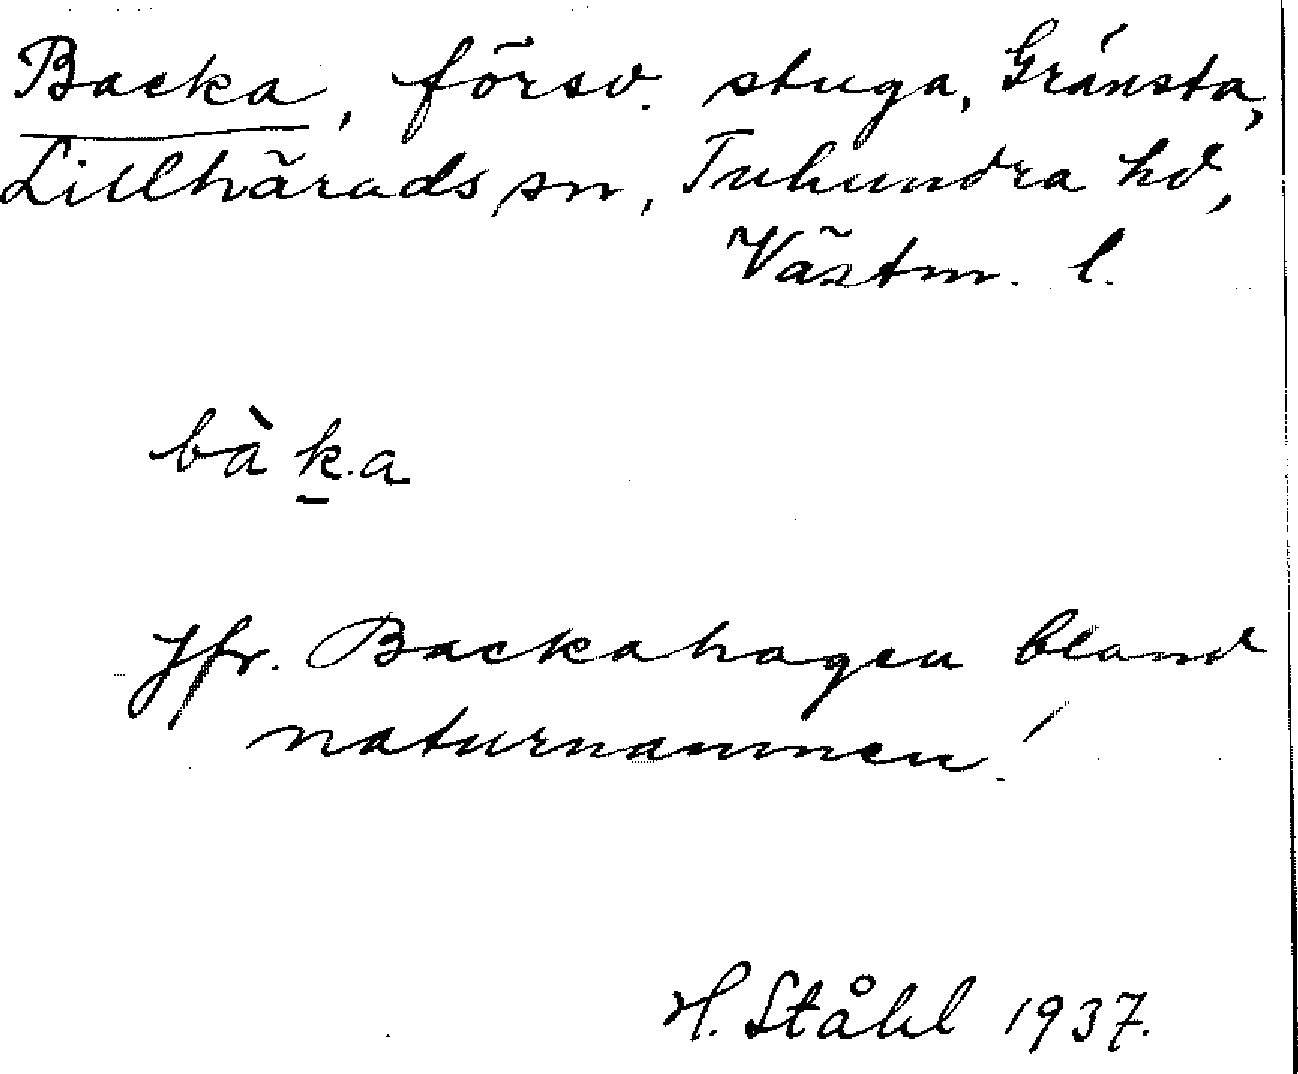 Backa, försv. stuga, Gränsta,
Lillhärads sn, Tuhundra hd,
Västm. l.
bàk̲a
Jfr. Backahagen bland
naturnamnen!
H. Ståhl 1937.